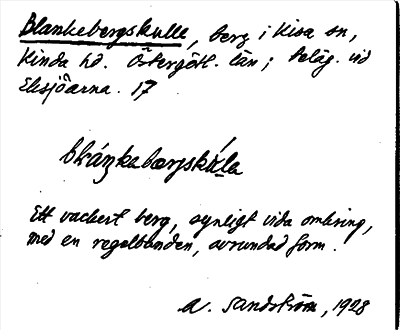 Blankebergskulle, berg i Kisa sn,
Kinda hd. Östergötl. län; beläg. vid
Elsjöarna. 17
blánkebærgskúla
Ett vackert berg, synligt vida omkring,
med en regelbunden, avrundad form.
A. Sandström, 1928